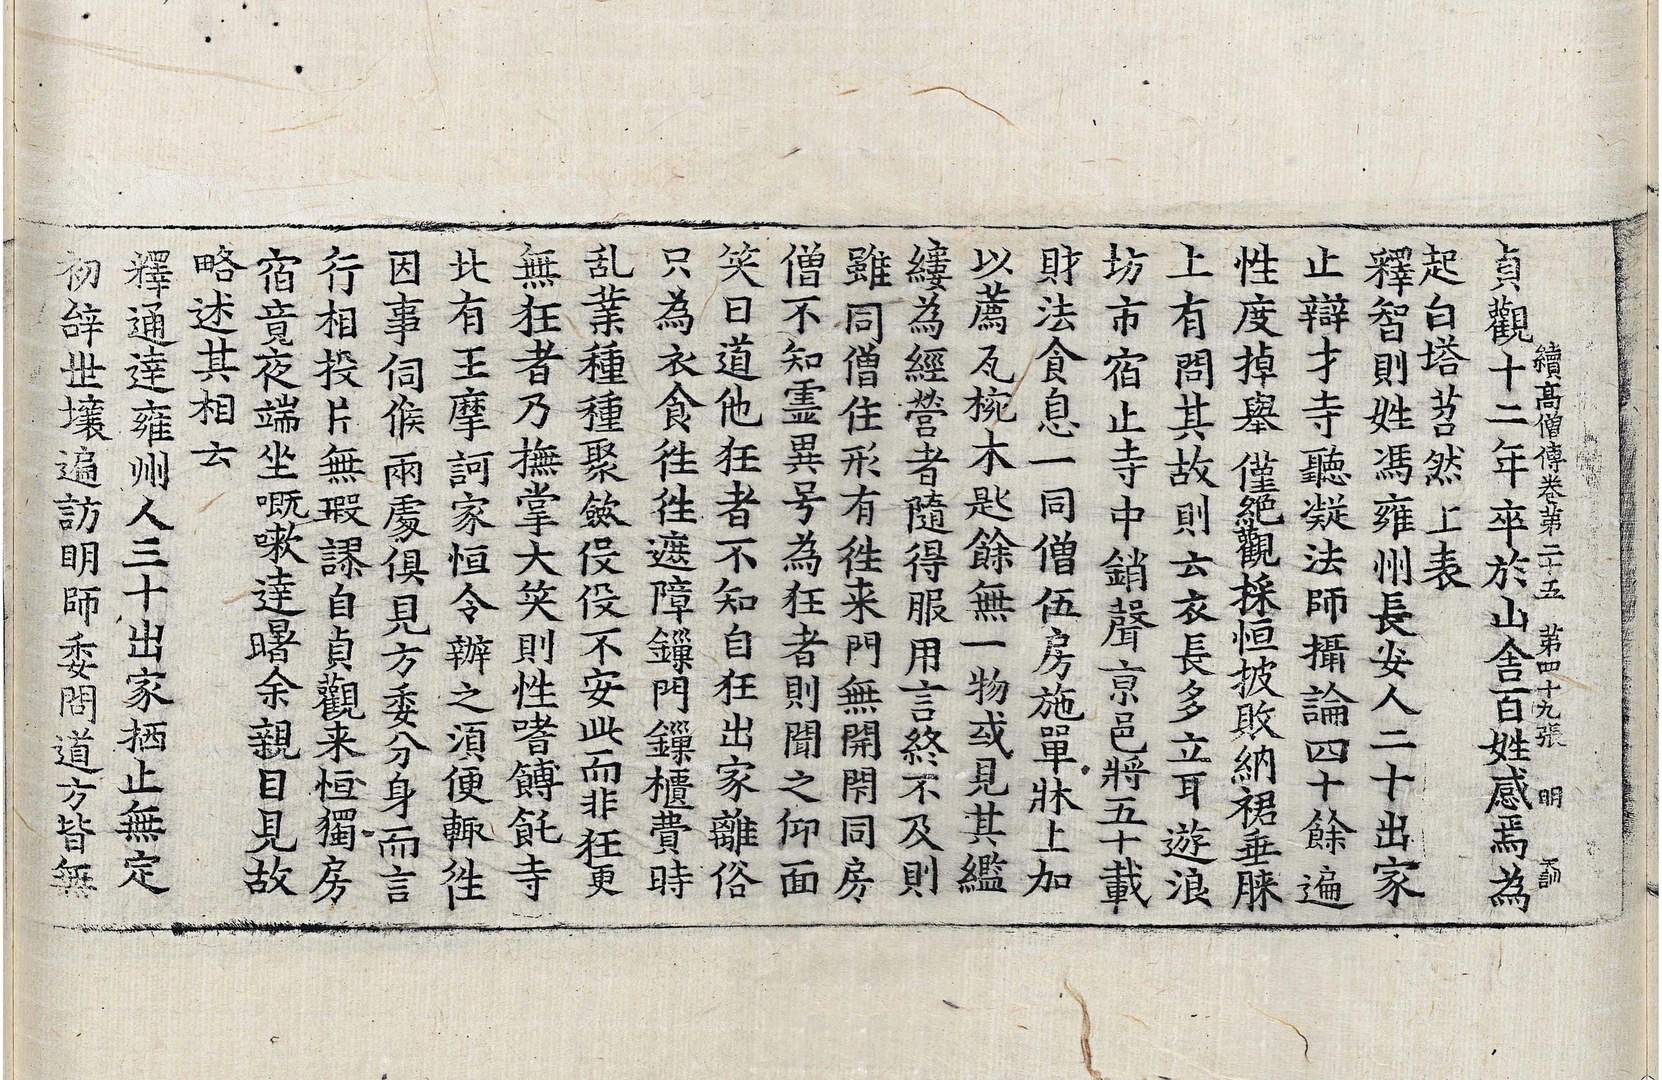 續高僧傳卷第二十五　第四十九張　明
貞觀十二年卒於山舍百姓感焉為
起白塔苕然上表
釋智則姓馮雍州長安人二十出家
止辯才寺聽凝法師攝論四十餘遍
性度掉舉僅絕觀採恒披敗納裙垂膝
上有問其故則云衣長多立耳遊浪
坊市宿止寺中銷聲京邑將五十載
財法食息一同僧伍房施單牀上加
以薦瓦椀木匙餘無一物或見其襤
縷為經營者隨得服用言終不及則
雖同僧住形有徃来門無開閇同房
僧不知霊異号為狂者則聞之仰面
笑曰道他狂者不知自狂出家離俗
只為衣食徃徃遮障鏁門鏁櫃費時
乱業種種聚斂役役不安此而非狂更
無狂者乃撫掌大笑則性嗜餺飥寺
北有王摩訶家恒令辦之湏便輙徃
因事伺候兩處俱見方委分身而言
行相投片無瑕謬自貞觀来恒獨房
宿竟夜端坐嘅嗽達曙余親目見故
略述其相云
釋通達雍州人三十出家栖止無定
初辞世壤遍訪明師委問道方皆無